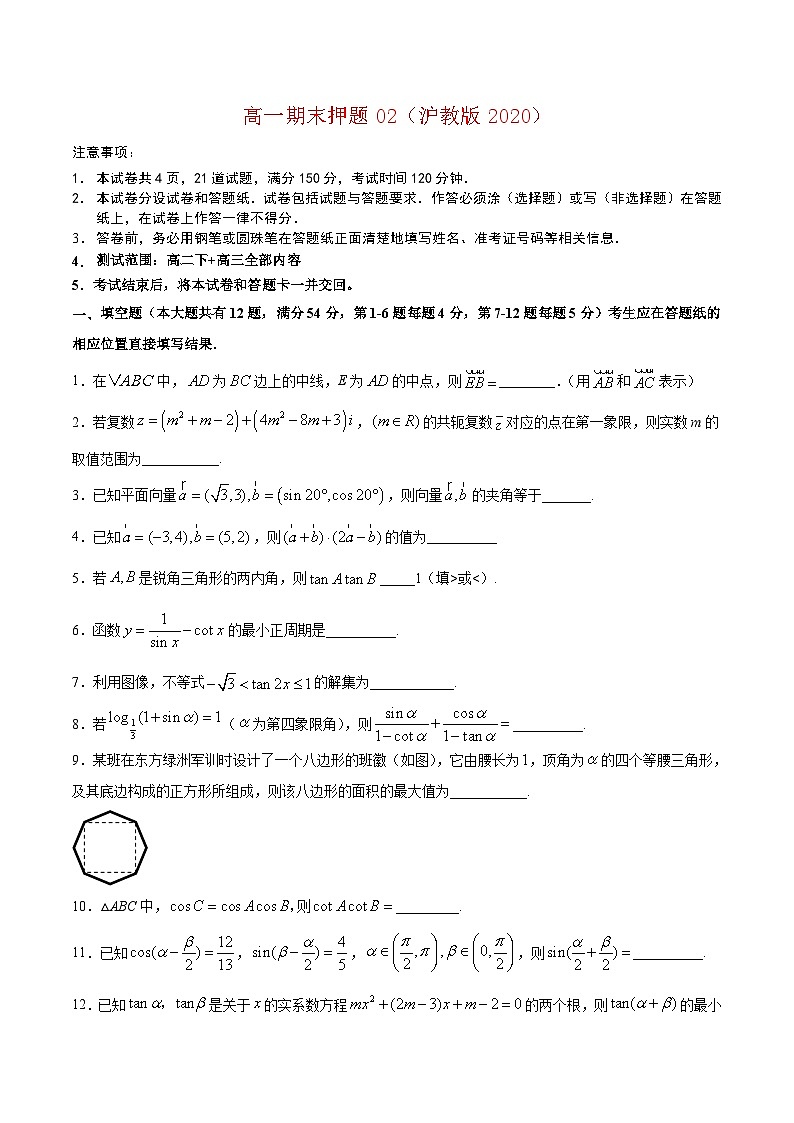 高一期末押题 02（沪教版 2020）
注意事项：
1． 本试卷共 4 页，21 道试题，满分 150 分，考试时间 120 分钟．
2． 本试卷分设试卷和答题纸．试卷包括试题与答题要求．作答必须涂（选择题）或写（非选择题）在答题
纸上，在试卷上作答一律不得分．
3． 答卷前，务必用钢笔或圆珠笔在答题纸正面清楚地填写姓名、准考证号码等相关信息．
4． 测试范围：高二下+高三全部内容
5．考试结束后，将本试卷和答题卡一并交回。
一、填空题（本大题共有 12 题，满分 54 分，第 1-6 题每题 4 分，第 7-12 题每题 5 分）考生应在答题纸的
相应位置直接填写结果．
1．在 VABC 中， AD 为 BC 边上的中线，E 为 AD 的中点，则 EB = ________.（用 AB 和 AC 表示）
2．若复数 z = (m² + m − 2) + (4m² − 8m + 3) i ，(m ∈ R) 的共轭复数 z̄ 对应的点在第一象限，则实数 m 的
取值范围为___________.
3．已知平面向量 a = (√3,3), b = (sin 20°,cos 20°) ，则向量 a, b 的夹角等于_______.
4．已知 a = (−3,4), b = (5,2) ，则 (a + b) · (2a − b) 的值为__________
5．若 A, B 是锐角三角形的两内角，则 tan A tan B _____1（填>或<）.
6．函数 y = 1/sin x − cot x 的最小正周期是__________.
7．利用图像，不等式 −√3 < tan 2x ≤ 1 的解集为____________.
8．若 log_{1/3} (1 + sin α) = 1（ α 为第四象限角），则 sin α/(1 − cot α) + cos α/(1 − tan α) = __________.
9．某班在东方绿洲军训时设计了一个八边形的班徽（如图），它由腰长为 1，顶角为 α 的四个等腰三角形，
及其底边构成的正方形所组成，则该八边形的面积的最大值为___________.
10．△ABC 中， cos C = cos A cos B, 则 cot A cot B = _________.
11．已知 cos(α − β/2) = 12/13 ， sin(β − α/2) = 4/5 ， α ∈ (π/2, π), β ∈ (0, π/2) ，则 sin(α/2 + β/2) = __________.
12．已知 tan α，tan β 是关于 x 的实系数方程 mx² + (2m − 3)x + m − 2 = 0 的两个根，则 tan(α + β) 的最小